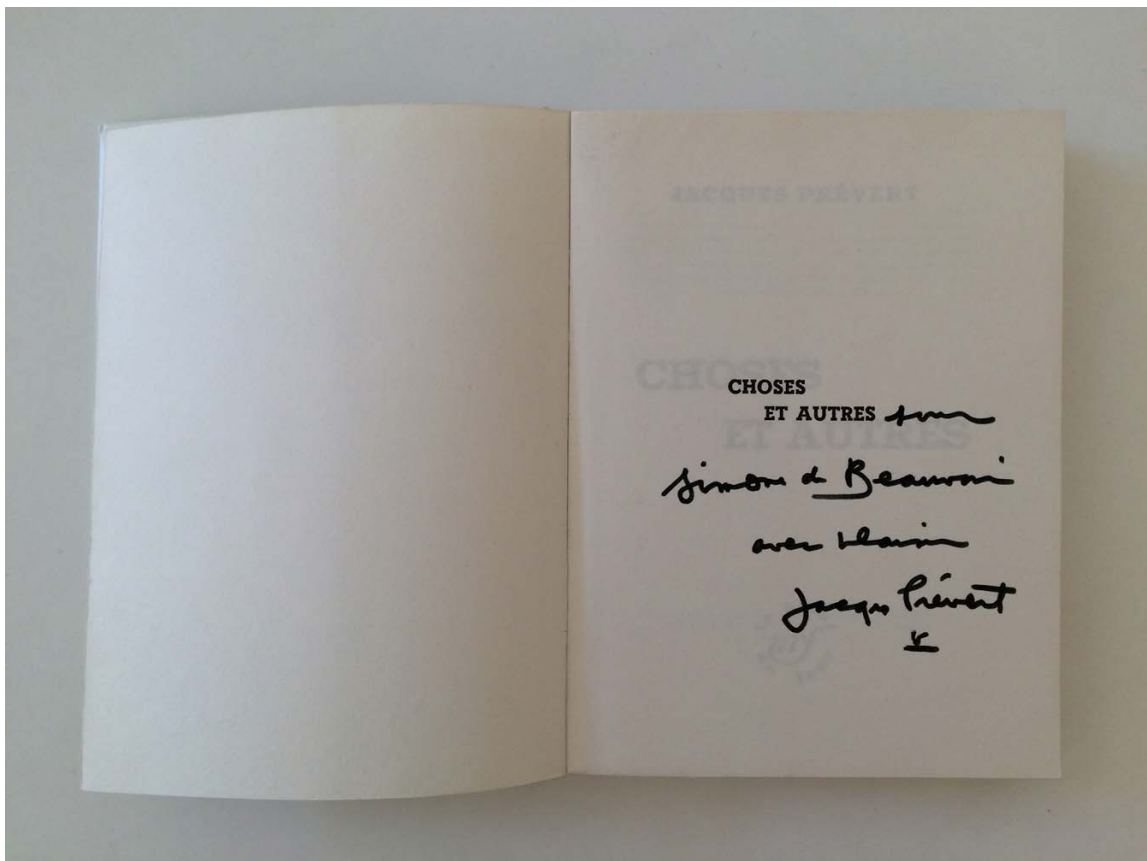 JACQUES PRÉVERT
CHOSES
ET AUTRES
CHOSES
ET AUTRES pour
Simone de Beauvoir
avec plaisir
Jacques Prévert